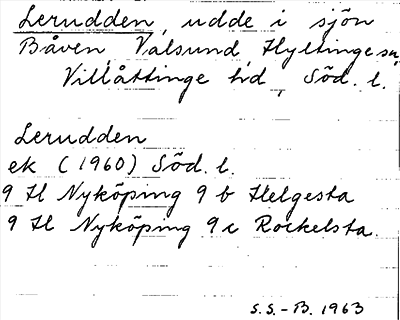 Lerudden, udde i sjön
Båven, Valsund Hyltinge sn,
Villåttinge hd, Söd. l.
Lerudden
ek (1960) Söd. l.
9 H Nyköping 9 b Helgesta
9 H Nyköping 9 c Rockelsta.
S.S.-B. 1963